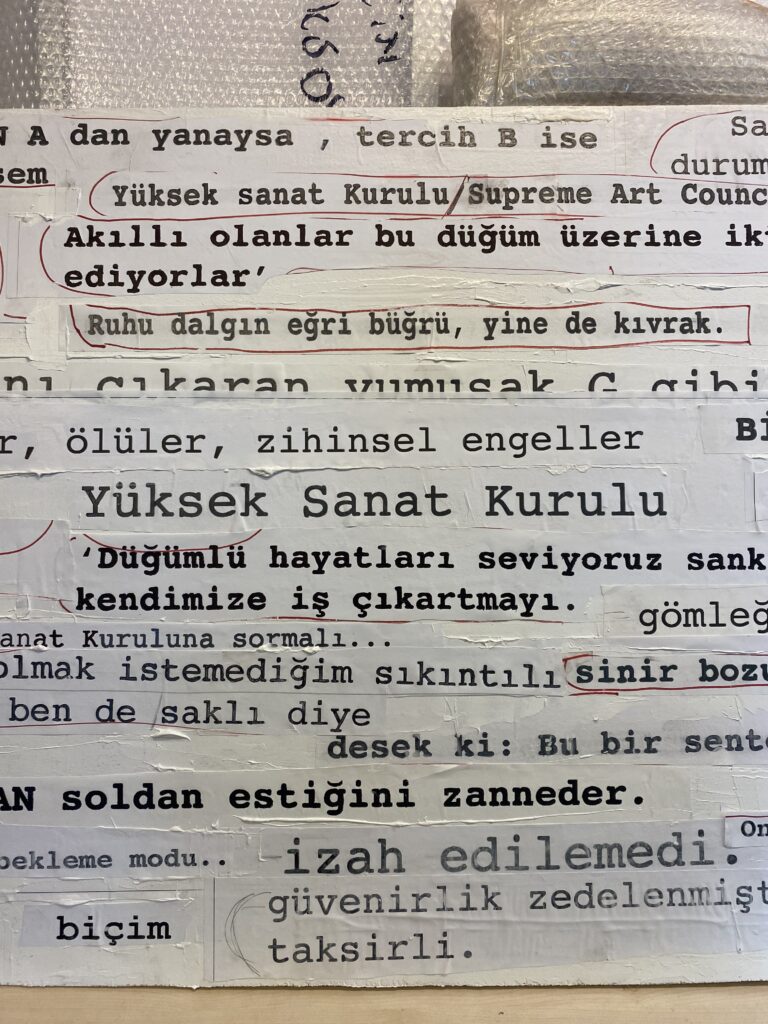 A dan yanaysa , tercih B ise
Sa
durum
sem
Yüksek sanat Kurulu/Supreme Art Counc
Akıllı olanlar bu düğüm üzerine ik
ediyorlar’
Ruhu dalgın eğri büğrü, yine de kıvrak.
nı çıkaran yumuşak G gibi
r, ölüler, zihinsel engeller
Bİ
Yüksek Sanat Kurulu
‘Düğümlü hayatları seviyoruz sank
kendimize iş çıkartmayı.
gömleğ
anat Kuruluna sormalı...
olmak istemediğim sıkıntılı sinir bozu
ben de saklı diye
desek ki: Bu bir sente
AN soldan estiğini zanneder.
On
bekleme modu..
izah edilemedi.
güvenirlik zedelenmişt
biçim
taksirli.